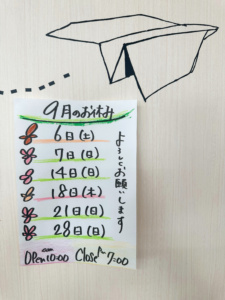 9月のお休み
6日(土)
7日(日)
14日(日)
18日(木)
21日(日)
28日(日)
よろしくお願いします
OPen 10:00 Close 7:00